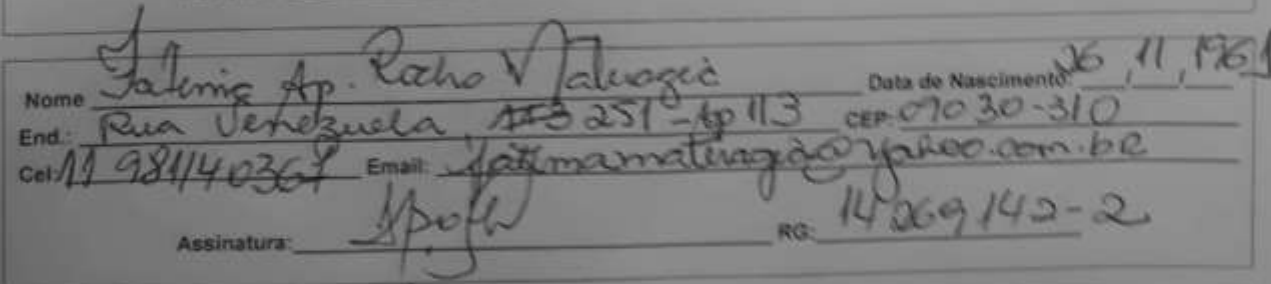 Nome Fatima Ap. Rocha Data de Nascimento: 26, 11, 1961
End.: Rua Venezuela, 251-Ap 113 CEP: 07030-310
Cel: 11 981140367 Email: @yahoo.com.br
Assinatura: RG: 14269142-2